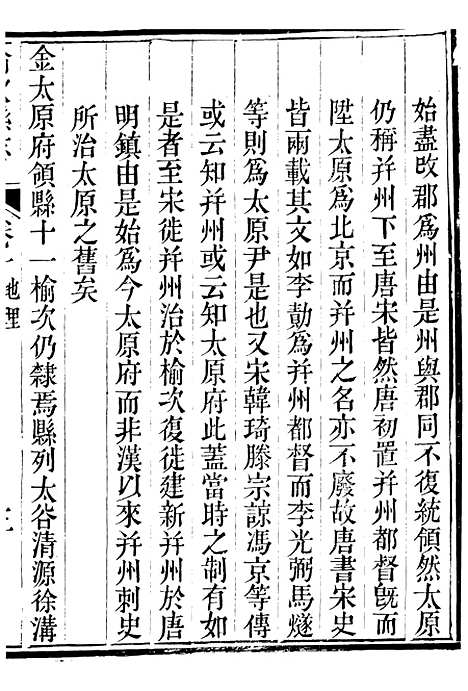 始盡改郡爲州由是州與郡同不復統領然太原
仍稱幷州下至唐宋皆然唐初置幷州都督旣而
陞太原爲北京而幷州之名亦不廢故唐書宋史
皆兩載其文如李勣爲幷州都督而李光弼馬燧
等則爲太原尹是也又宋韓琦滕宗諒馮京等傳
或云知幷州或云知太原府此蓋當時之制有如
是者至宋徙幷州治於榆次復徙建新幷州於唐
明鎮由是始爲今太原府而非漢以來幷州刺史
所治太原之舊矣
金太原府領縣十一榆次仍隸焉縣列太谷清源徐溝
地理